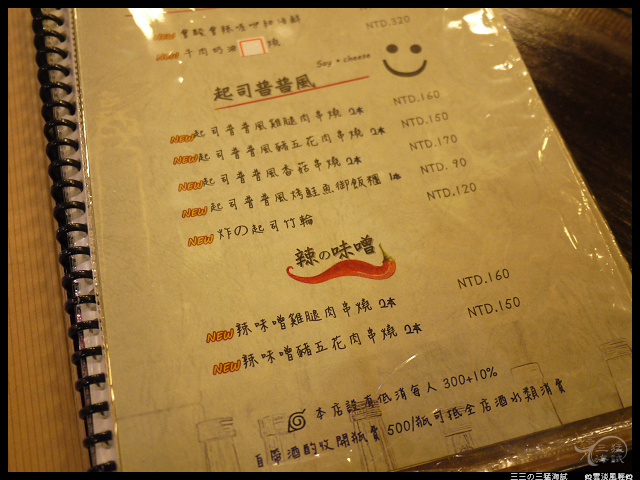 NEW 會酸會辣
NTD.320
NEW 牛肉奶油 燒
Say • cheese
起司普普風
NEW 起司普普風雞腿肉串燒 2本 NTD.160
NEW 起司普普風豬五花肉串燒 2本 NTD.150
NEW 起司普普風香菇串燒 2本 NTD.170
NEW 起司普普風烤鮭魚御飯糰 1本 NTD. 90
NEW 炸の起司竹輪 NTD.120
辣の味噌
NEW 辣味噌雞腿肉串燒 2本 NTD.160
NEW 辣味噌豬五花肉串燒 2本 NTD.150
本店設有低消每人 300+10%
自帶酒酌收開瓶費 500/瓶可抵全店酒水類消費
三三の三猛海賊 雲淡風輕